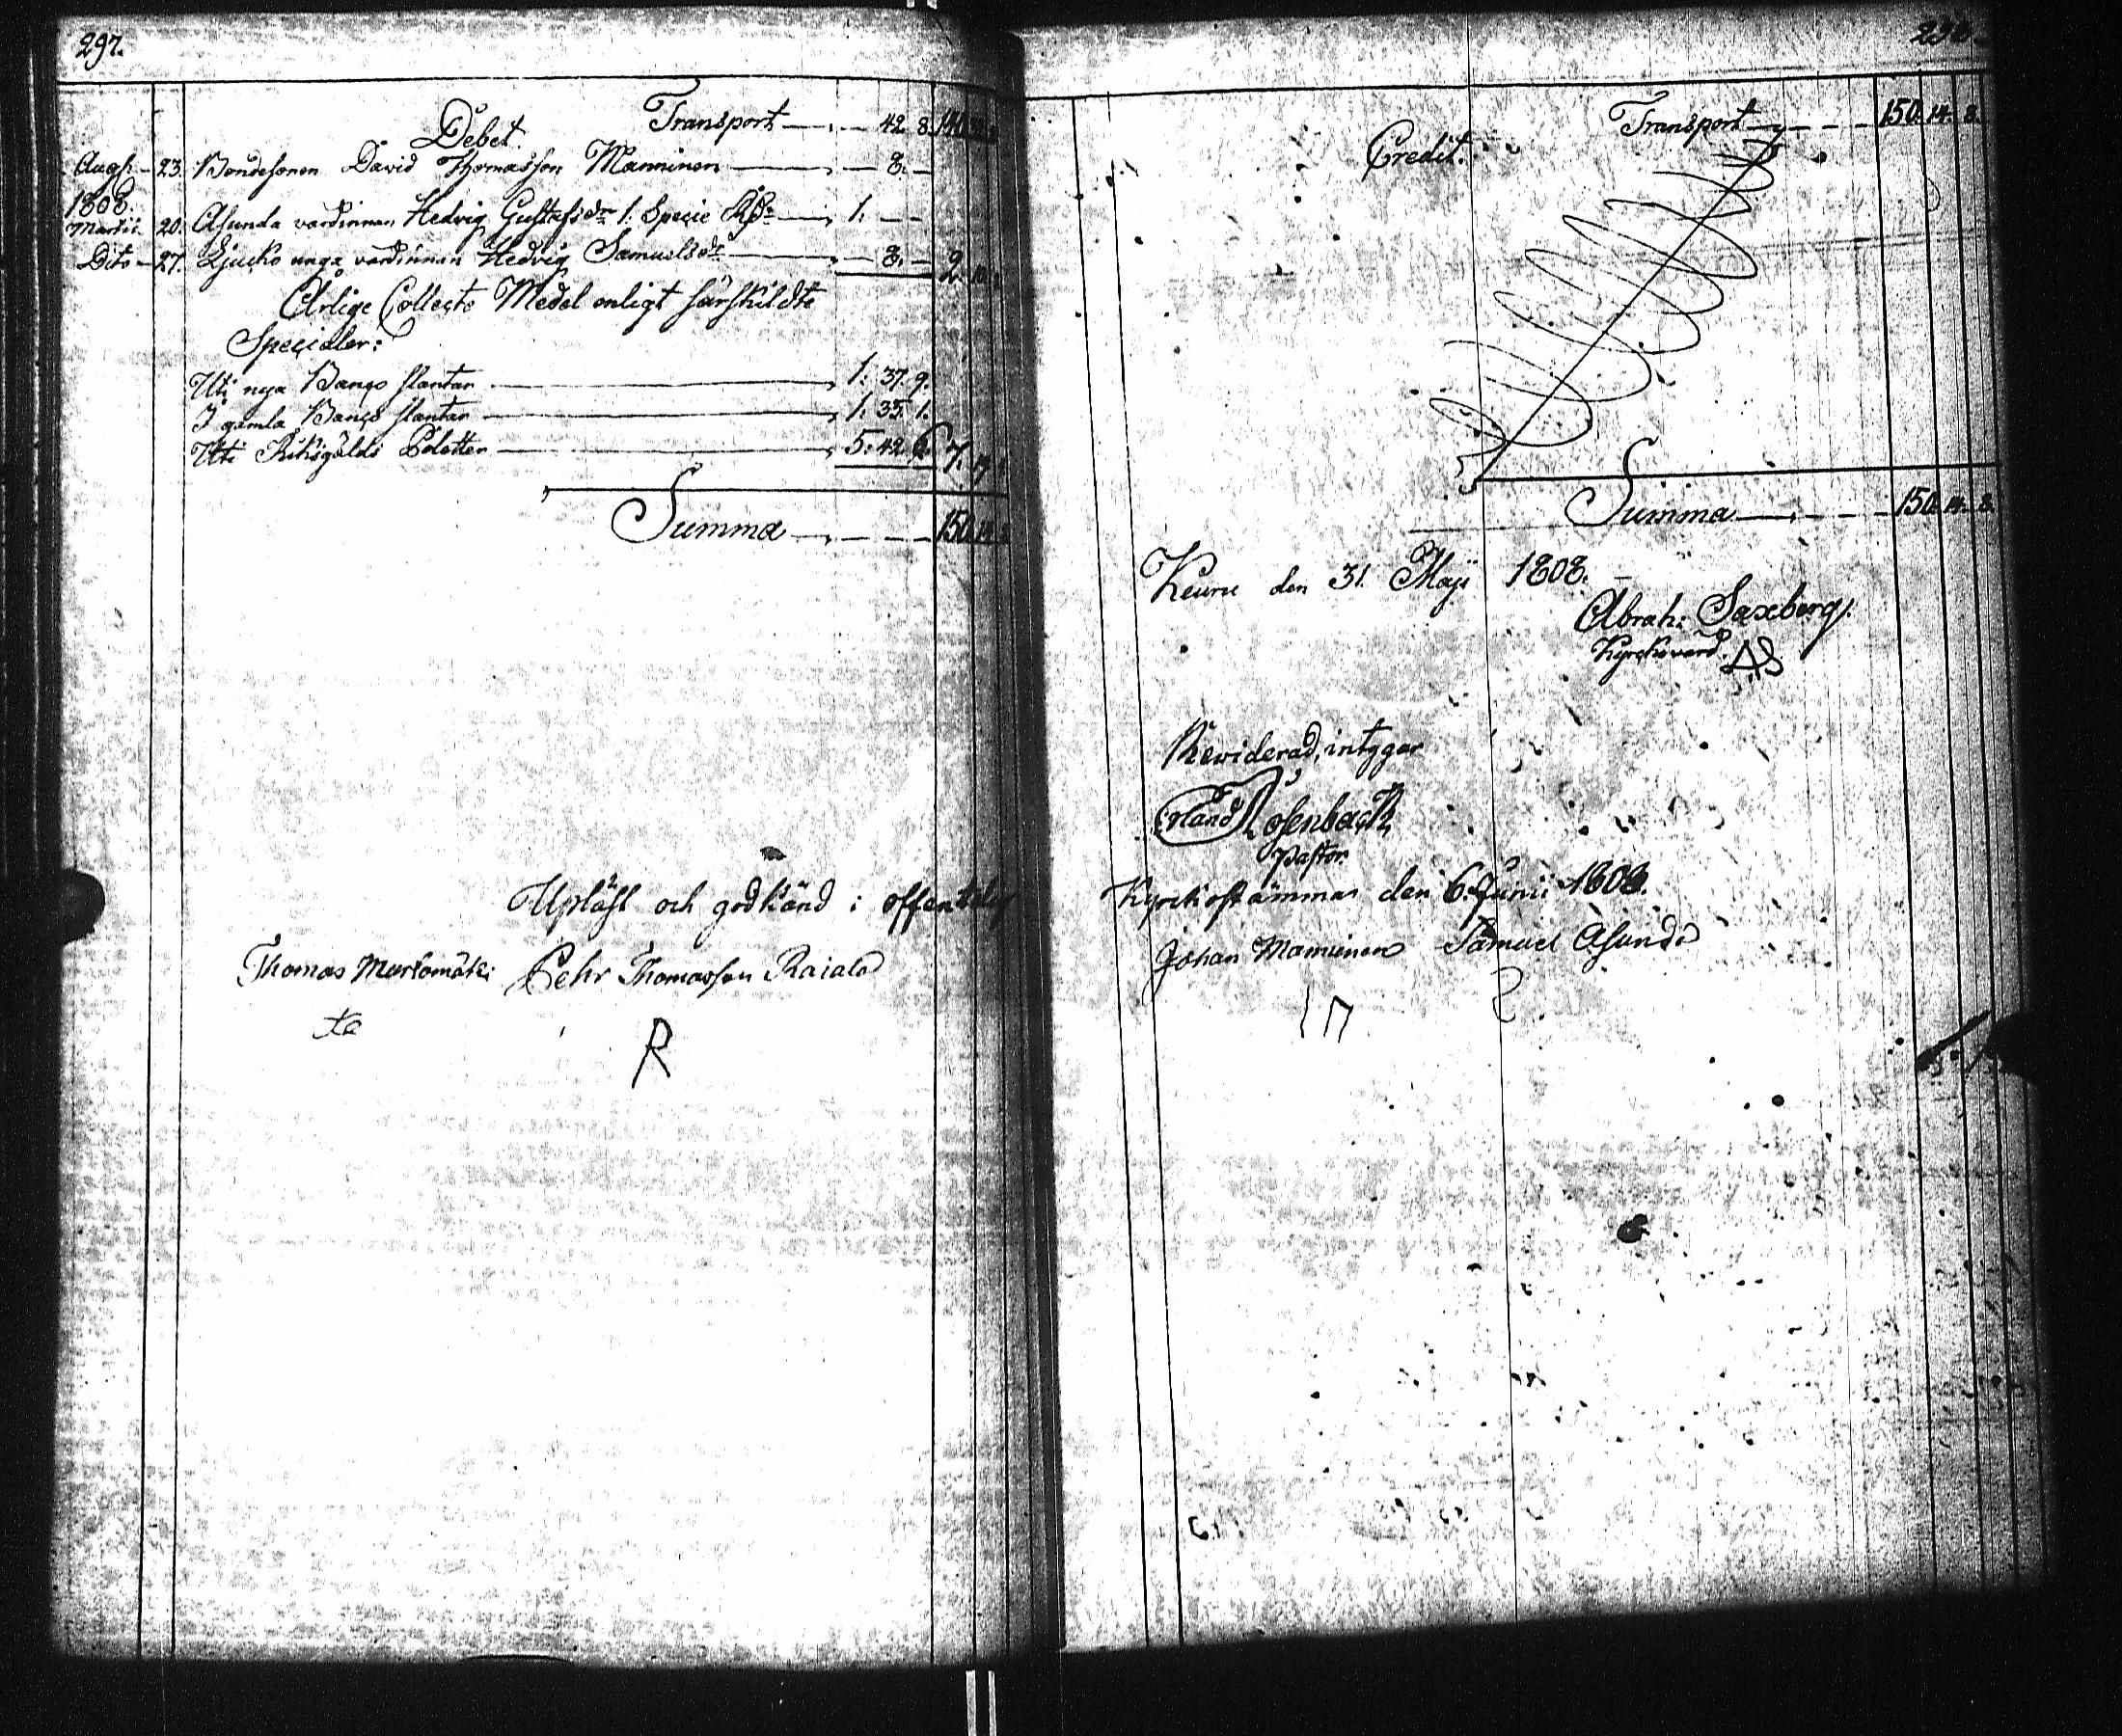 297.
Debet. Transport — 42 8. 140
Augst. — 23. Bondesonen David Thomasson Manninen — 8. —
1808.
Martii. 20. Asunda värdinnan Hedvig Gustafsdr 1. Specie Rdr — 1. —
Dito — 27. Ljucko unga värdinnan Hedvig Samuelsdr — 8. — 2. 10
Årlige Collecte Medel enligt särskildte
Specialer:
Uti nya Banco slantar — 1: 37. 9.
I gamla Banco slantar — 1: 35. 1.
Uti Riksgälds Poletter — 5: 42. 6. 7. 19
Summa — 150. 14.
Upläst och godkänd i offentlig
Thomas Murtomäki Pehr Thomasson Raiala
R
Credit. Transport — 150. 14. 8.
Summa — 150. 14. 8.
Keuru den 31. Maji 1808.
Abrah: Saxberg.
Kyrckovärd. AS
Reviderad, intygar
Erland Rosenback
Pastor.
Kyrckostämman den 6. Junii 1808.
Johan Manninen Samuel Asunda